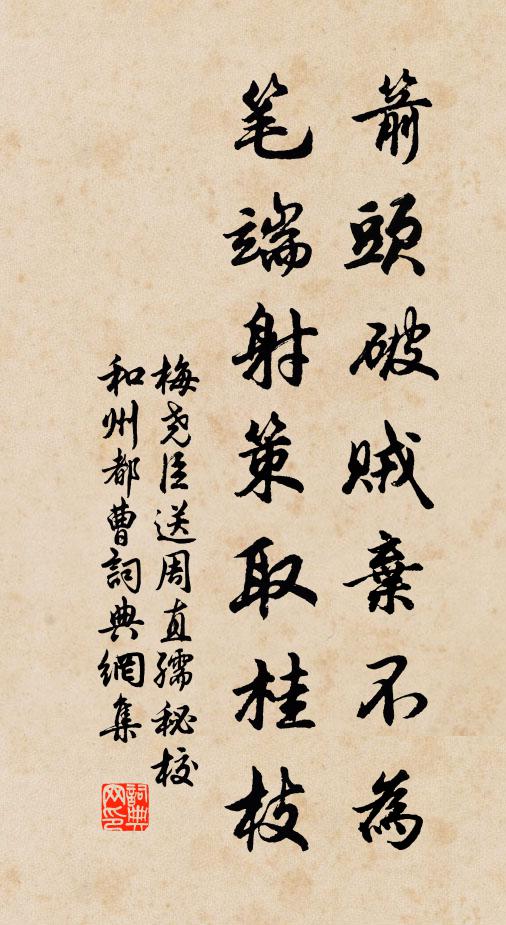 箭頭破賊棄不為
笔端射策取桂枝
梅尧臣送周直孺秘校
和州都曹詞典網集
詞典网印